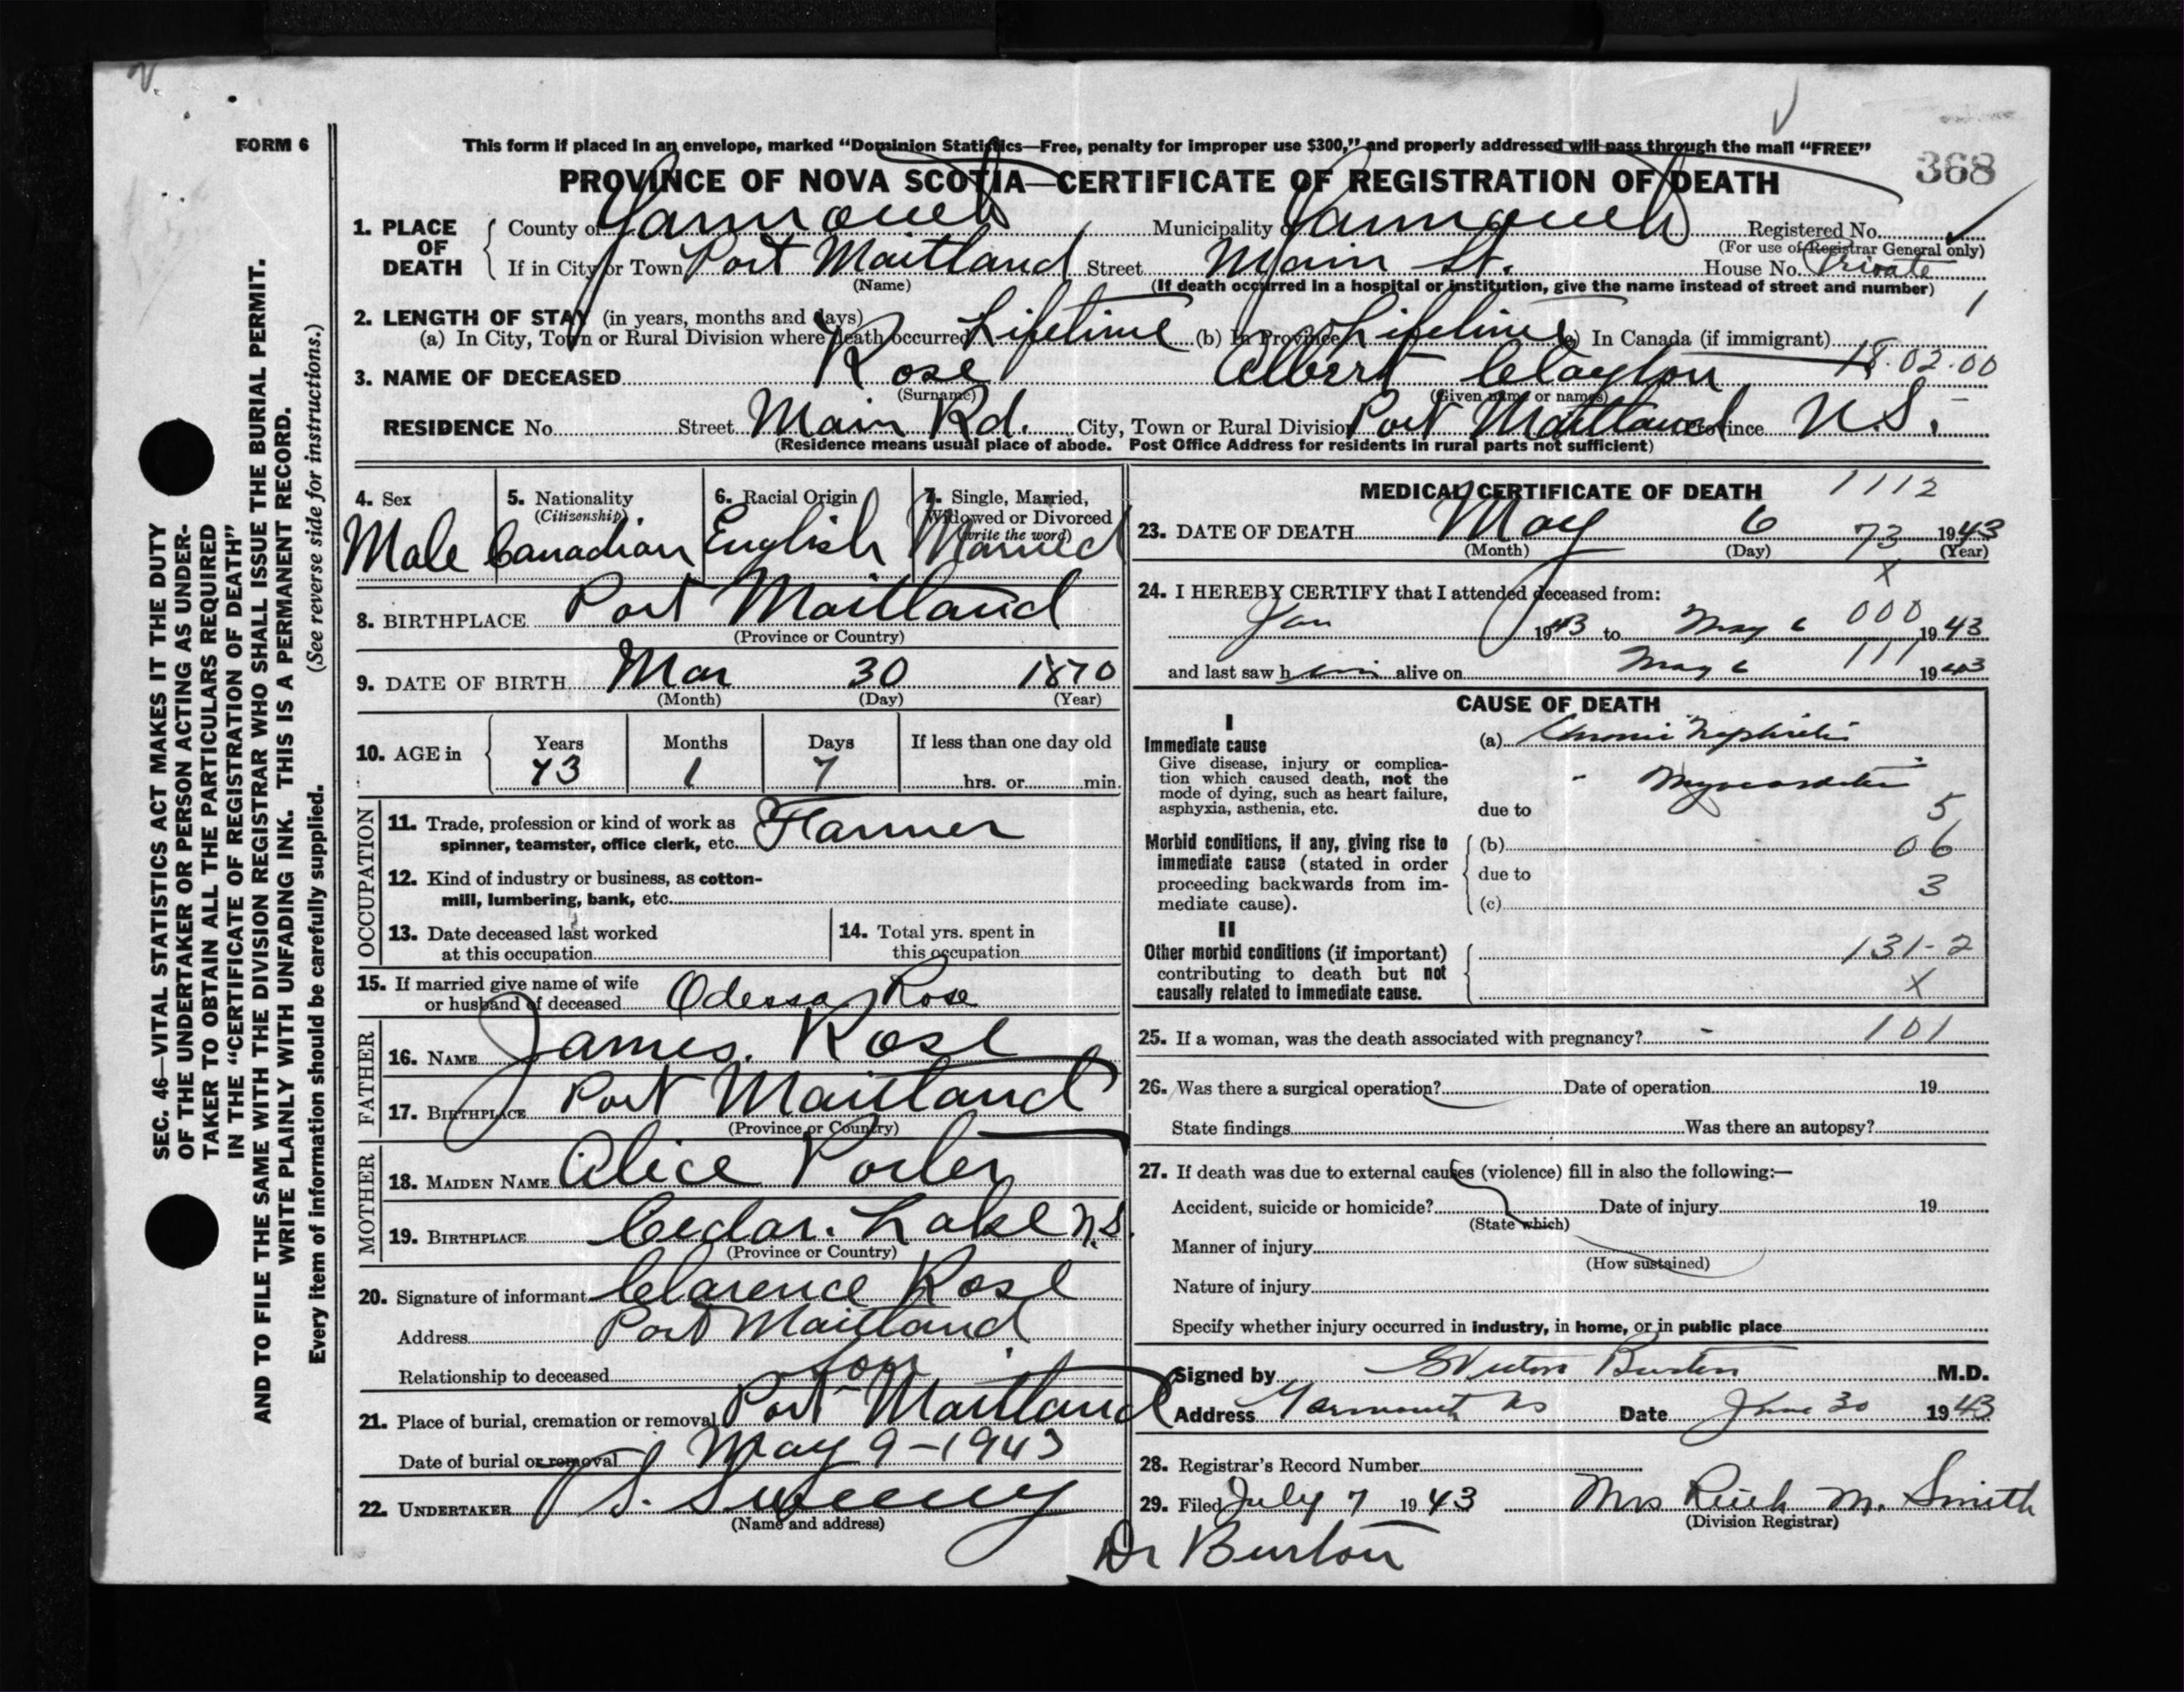 FORM 6
This form if placed in an envelope, marked "Dominion Statistics—Free, penalty for improper use $300," and properly addressed will pass through the mail "FREE"
368
PROVINCE OF NOVA SCOTIA—CERTIFICATE OF REGISTRATION OF DEATH
1. PLACE OF DEATH
County of Yarmouth Municipality of Yarmouth Registered No.
(For use of Registrar General only)
If in City or Town Port Maitland Street Main St. House No. Private
(Name) (If death occurred in a hospital or institution, give the name instead of street and number)
1
2. LENGTH OF STAY (in years, months and days)
(a) In City, Town or Rural Division where death occurred Lifetime (b) In Province Lifetime (c) In Canada (if immigrant)
18.02.00
3. NAME OF DECEASED Rose Albert Clayton
(Surname) (Given name or names)
RESIDENCE No. Street Main Rd. City, Town or Rural Division Port Maitland Province N.S.
(Residence means usual place of abode. Post Office Address for residents in rural parts not sufficient)
4. Sex
Male
5. Nationality
(Citizenship)
Canadian
6. Racial Origin
English
7. Single, Married,
Widowed or Divorced
(write the word)
Married
8. BIRTHPLACE Port Maitland
(Province or Country)
9. DATE OF BIRTH Mar 30 1870
(Month) (Day) (Year)
10. AGE in
Years Months Days If less than one day old
73 1 7 hrs. or min.
OCCUPATION
11. Trade, profession or kind of work as
spinner, teamster, office clerk, etc. Farmer
12. Kind of industry or business, as cotton-
mill, lumbering, bank, etc.
13. Date deceased last worked
at this occupation
14. Total yrs. spent in
this occupation
15. If married give name of wife
or husband of deceased Odessa Rose
FATHER
16. NAME James Rose
17. BIRTHPLACE Port Maitland
(Province or Country)
MOTHER
18. MAIDEN NAME Alice Porter
19. BIRTHPLACE Cedar Lake N.S.
(Province or Country)
20. Signature of informant Clarence Rose
Address Port Maitland
Relationship to deceased Son
21. Place of burial, cremation or removal Port Maitland
Date of burial or removal May 9-1943
22. UNDERTAKER S. Sweeny
(Name and address)
MEDICAL CERTIFICATE OF DEATH 1112
23. DATE OF DEATH May 6 73 1943
(Month) (Day) (Year)
X
24. I HEREBY CERTIFY that I attended deceased from:
Jan 1943 to May 6 000 1943
and last saw him alive on May 6 111 1943
CAUSE OF DEATH
I
Immediate cause
Give disease, injury or complica-
tion which caused death, not the
mode of dying, such as heart failure,
asphyxia, asthenia, etc.
(a) Chronic Nephritis
" Myocarditis
due to 5
Morbid conditions, if any, giving rise to
immediate cause (stated in order
proceeding backwards from im-
mediate cause).
(b) 06
due to 3
(c)
II
Other morbid conditions (if important)
contributing to death but not
causally related to immediate cause.
131-2
X
25. If a woman, was the death associated with pregnancy? - 101
26. Was there a surgical operation? Date of operation 19
State findings Was there an autopsy?
27. If death was due to external causes (violence) fill in also the following:—
Accident, suicide or homicide? Date of injury 19
(State which)
Manner of injury
(How sustained)
Nature of injury
Specify whether injury occurred in industry, in home, or in public place
Signed by Burton M.D.
Address Yarmouth NS Date June 30 1943
28. Registrar's Record Number
29. Filed July 7 1943 Mrs Ruth M. Smith
(Division Registrar)
Dr Burton
SEC. 46—VITAL STATISTICS ACT MAKES IT THE DUTY
OF THE UNDERTAKER OR PERSON ACTING AS UNDER-
TAKER TO OBTAIN ALL THE PARTICULARS REQUIRED
IN THE "CERTIFICATE OF REGISTRATION OF DEATH"
AND TO FILE THE SAME WITH THE DIVISION REGISTRAR WHO SHALL ISSUE THE BURIAL PERMIT.
WRITE PLAINLY WITH UNFADING INK. THIS IS A PERMANENT RECORD.
Every item of information should be carefully supplied. (See reverse side for instructions.)